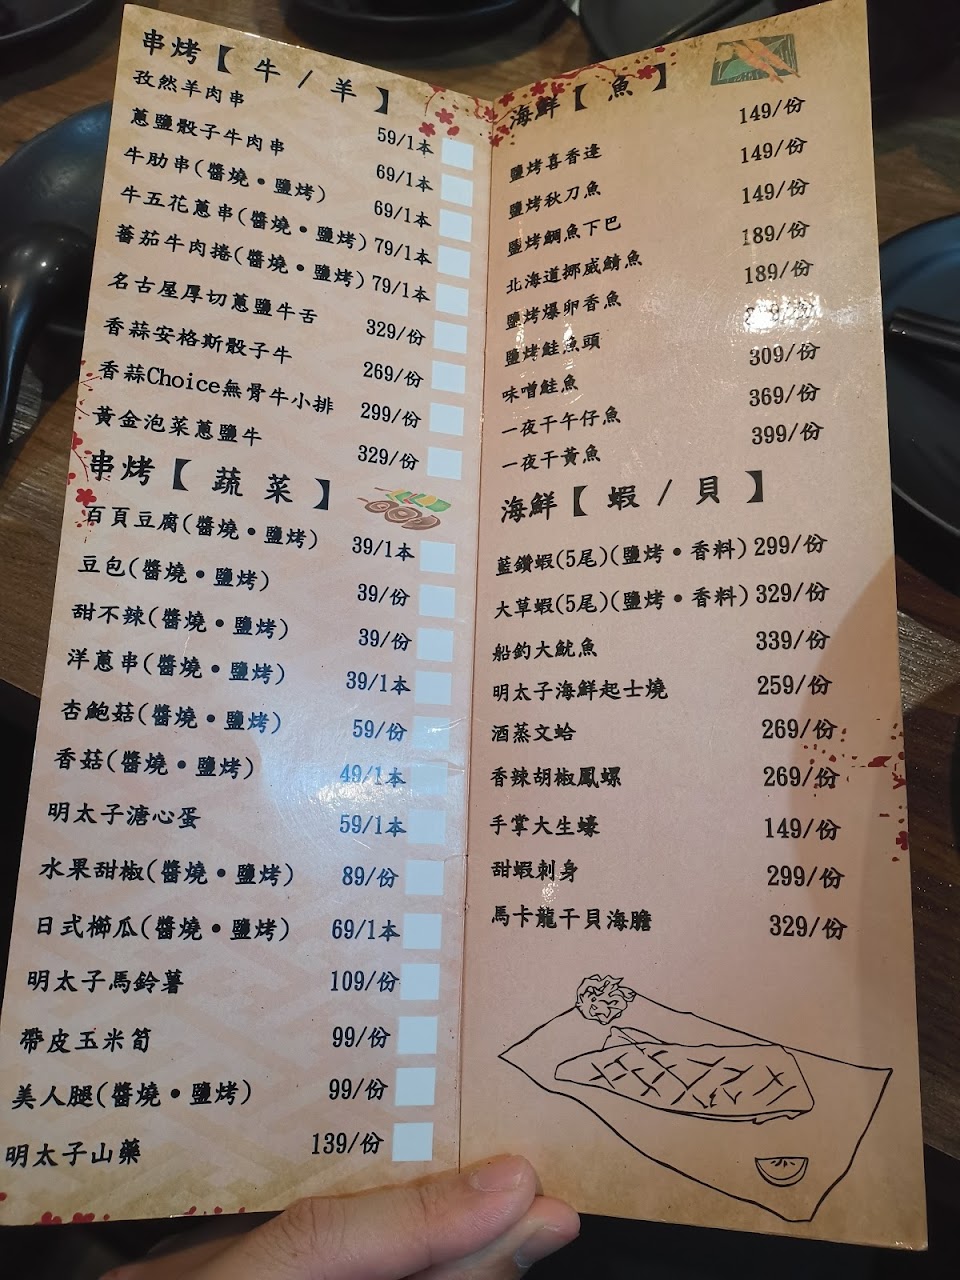 串烤【 牛 / 羊 】
孜然羊肉串 59/1本
蔥鹽骰子牛肉串 69/1本
牛肋串(醬燒•鹽烤) 69/1本
牛五花蔥串(醬燒•鹽烤) 79/1本
蕃茄牛肉捲(醬燒•鹽烤) 79/1本
名古屋厚切蔥鹽牛舌 329/份
香蒜安格斯骰子牛 269/份
香蒜Choice無骨牛小排 299/份
黃金泡菜蔥鹽牛 329/份
串烤【 蔬 菜 】
百頁豆腐(醬燒•鹽烤) 39/1本
豆包(醬燒•鹽烤) 39/份
甜不辣(醬燒•鹽烤) 39/份
洋蔥串(醬燒•鹽烤) 39/1本
杏鮑菇(醬燒•鹽烤) 59/份
香菇(醬燒•鹽烤) 49/1本
明太子溏心蛋 59/1本
水果甜椒(醬燒•鹽烤) 89/份
日式櫛瓜(醬燒•鹽烤) 69/1本
明太子馬鈴薯 109/份
帶皮玉米筍 99/份
美人腿(醬燒•鹽烤) 99/份
明太子山藥 139/份
海鮮【 魚 】
鹽烤喜香逢 149/份
鹽烤秋刀魚 149/份
鹽烤鯛魚下巴 149/份
北海道挪威鯖魚 189/份
鹽烤爆卵香魚 189/份
鹽烤鮭魚頭
味噌鮭魚 309/份
一夜干午仔魚 369/份
一夜干黃魚 399/份
海鮮【 蝦 / 貝 】
藍鑽蝦(5尾)(鹽烤•香料) 299/份
大草蝦(5尾)(鹽烤•香料) 329/份
船釣大魷魚 339/份
明太子海鮮起士燒 259/份
酒蒸文蛤 269/份
香辣胡椒鳳螺 269/份
手掌大生蠔 149/份
甜蝦刺身 299/份
馬卡龍干貝海膽 329/份